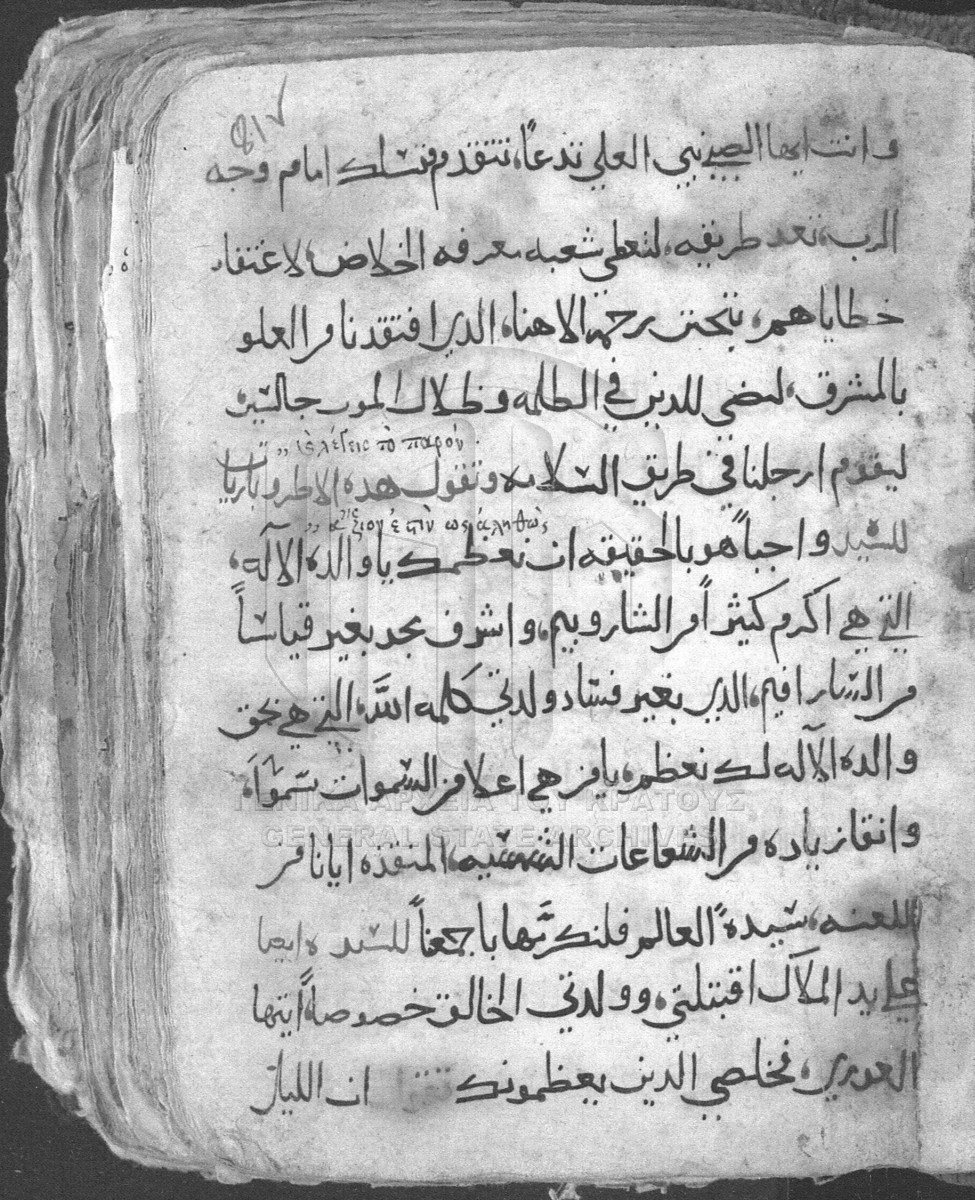 وانت ايها الصبي نبي العلي تدعاً، تتقدم فتسلك امام وجه
الرب، تعد طريقه، لتعطي شعبه معرفه الخلاص، لاغتفار
خطاياهم، بتحنن رحمة الاهنا، الذي افتقدنا من العلو
بالمشرق، ليضي للذين في الظلمه وظلال الموت جالسين
εἰ λέγεις τὸ παρὸν
ليقوم ارجلنا في طريق السلامه وتقول هذه الاطروباريا
ἄξιον ἐστὶν ὡς ἀληθῶς
للسيده واجباً هو بالحقيقه ان نعظمك يا والدة الاله،
التي هي اكرم كثيراً من الشاروبيم، واشرف بمجد بغير قياساً
من السارافيم، الذي بغير فساد ولدتي كلمه الله، التي هي بحق
والده الآله لك نعظم، يا من هي اعلا من السموات سمواً،
وانقا زياده من الشعاعات الشمسيه، المنقذه ايانا من
اللعنه، سيدةً العالم فلنكرّمها باجمعناً للسيده ايضا
على يد الملاك اقتبلتي، وولدتي الخالق خصوصاً ايتها
العذري، فخلصي الذين يعظمونك ان الليل
ΓΕΝΙΚΑ ΑΡΧΕΙΑ ΤΟΥ ΚΡΑΤΟΥΣ
GENERAL STATE ARCHIVES